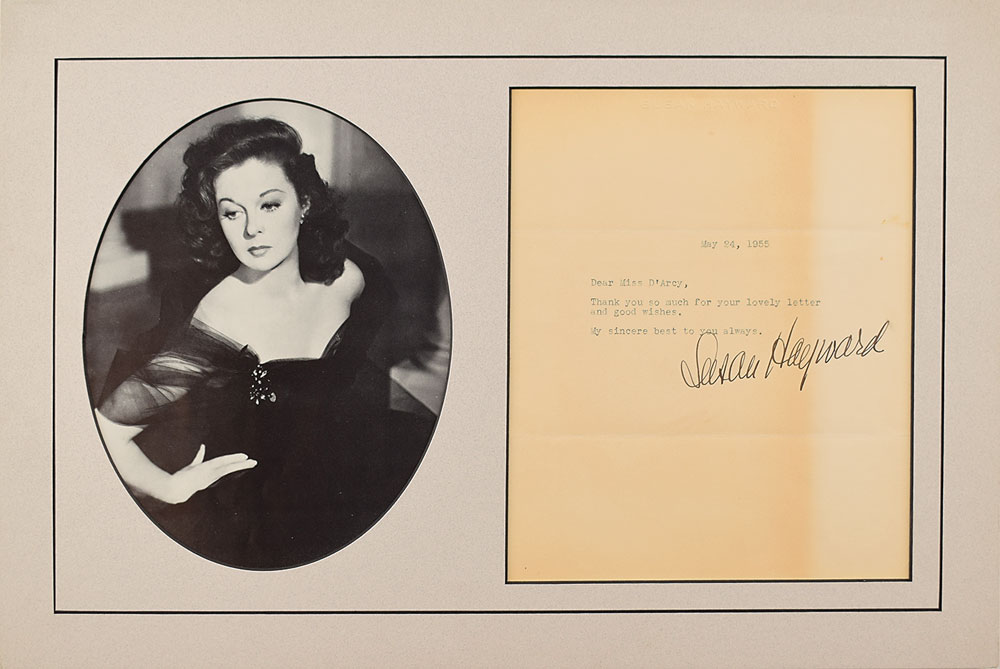 SUSAN HAYWARD
May 24, 1955
Dear Miss D'Arcy,
Thank you so much for your lovely letter
and good wishes.
My sincere best to you always.
Susan Hayward